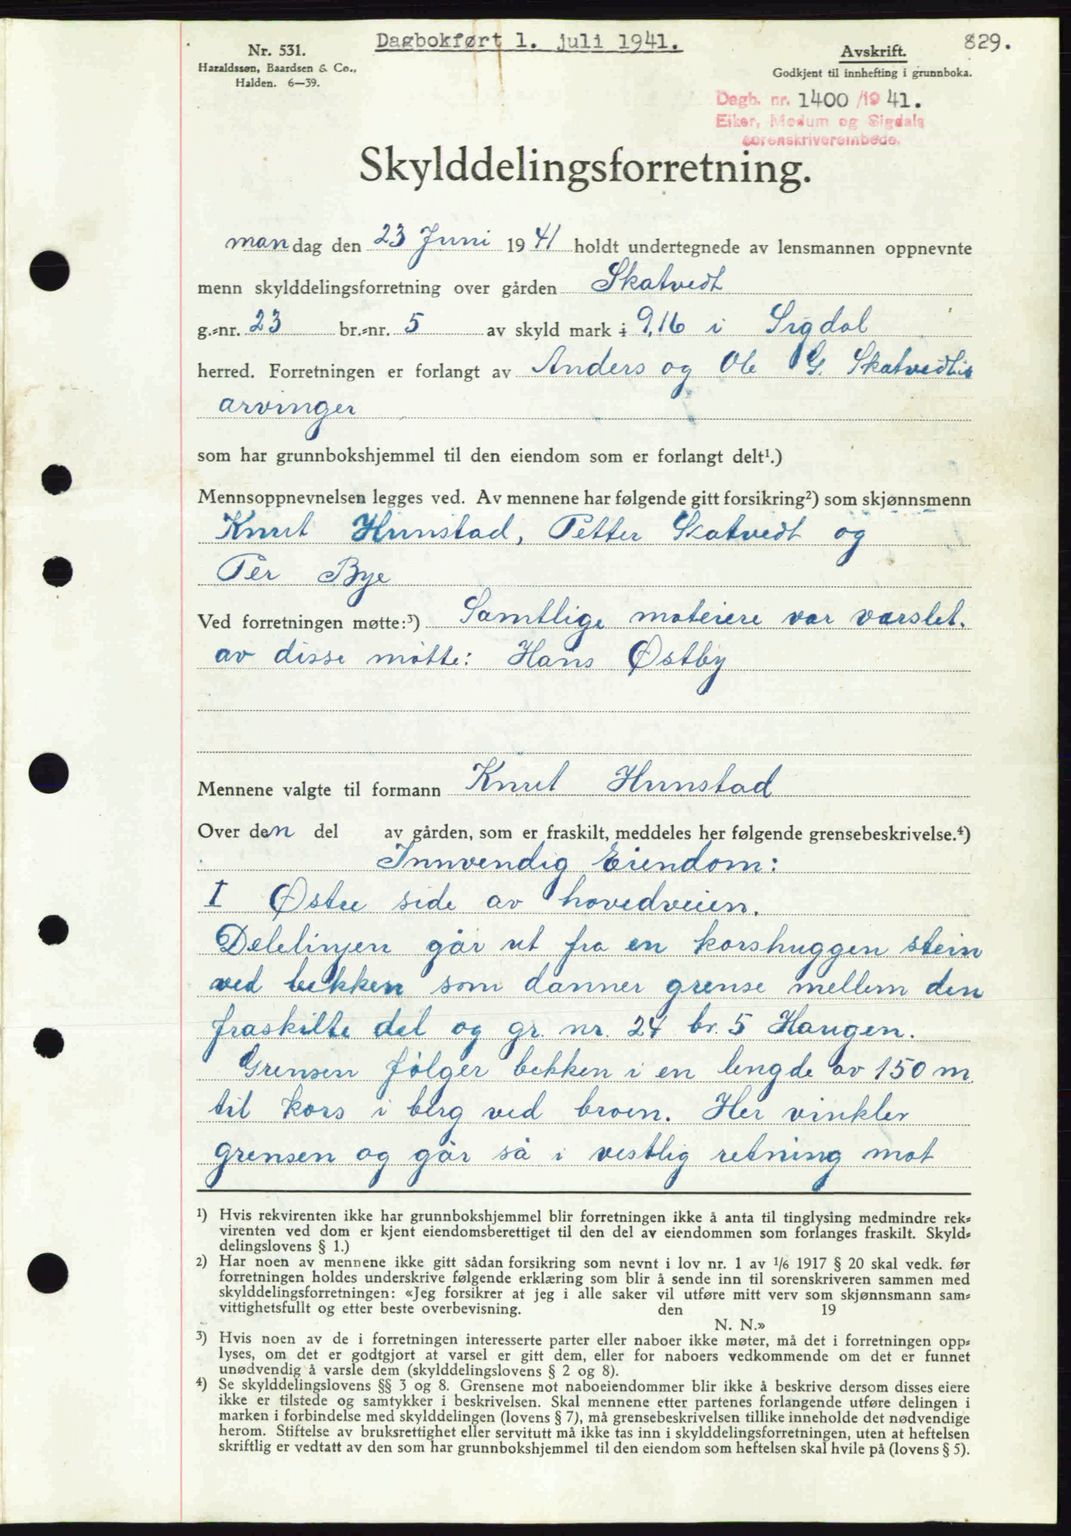 Nr. 531.
Haraldssøn, Baardsen & Co.,
Halden. 6—39.
Dagbokført 1. juli 1941.
Avskrift.
Godkjent til innhefting i grunnboka.
829.
Dagb. nr. 1400/1941.
Eiker, Modum og Sigdals
sorenskriverembede.
Skylddelingsforretning.
mandag den 23 Juni 1941 holdt undertegnede av lensmannen oppnevnte
menn skylddelingsforretning over gården Skatvedt
g.-nr. 23 br.-nr. 5 av skyld mark 9,16 i Sigdal
herred. Forretningen er forlangt av Anders og Ole G. Skatvedts
arvinger
som har grunnbokshjemmel til den eiendom som er forlangt delt¹.)
Mennsoppnevnelsen legges ved. Av mennene har følgende gitt forsikring²) som skjønnsmenn
Knut Hunstad, Petter Skatvedt og
Per Bye
Ved forretningen møtte:³) Samtlige moteiere var varslet.
av disse møtte: Hans Østby
Mennene valgte til formann Knut Hunstad
Over den del av gården, som er fraskilt, meddeles her følgende grensebeskrivelse.⁴)
Innvendig Eiendom:
I Østre side av hovedveien.
Delelinjen går ut fra en korshuggen stein
ved bekken som danner grense mellem den
fraskilte del og gr. nr. 24 br. 5 Haugen.
Grensen følger bekken i en lengde av 150 m.
til kors i berg ved broen. Her vinkler
grensen og går så i vestlig retning mot
¹) Hvis rekvirenten ikke har grunnbokshjemmel blir forretningen ikke å anta til tinglysing medmindre rek-
virenten ved dom er kjent eiendomsberettiget til den del av eiendommen som forlanges fraskilt. Skyld-
delingslovens § 1.)
²) Har noen av mennene ikke gitt sådan forsikring som nevnt i lov nr. 1 av 1/6 1917 § 20 skal vedk. før
forretningen holdes underskrive følgende erklæring som blir å sende inn til sorenskriveren sammen med
skylddelingsforretningen: «Jeg forsikrer at jeg i alle saker vil utføre mitt verv som skjønnsmann sam-
vittighetsfullt og etter beste overbevisning. den 19
N. N.»
³) Hvis noen av de i forretningen interesserte parter eller naboer ikke møter, må det i forretningen opp-
lyses, om det er godtgjort at varsel er gitt dem, eller for naboers vedkommende om det er funnet
unødvendig å varsle dem (skylddelingslovens § 2 og 8).
⁴) Se skylddelingslovens §§ 3 og 8. Grensene mot naboeiendommer blir ikke å beskrive dersom disses eiere
ikke er tilstede og samtykker i beskrivelsen. Skal mennene etter partenes forlangende utføre delingen i
marken i forbindelse med skylddelingen (lovens § 7), må grensebeskrivelsen tillike inneholde det nødvendige
herom. Stiftelse av bruksrettighet eller servitutt må ikke tas inn i skylddelingsforretningen, uten at heftelsen
skriftlig er vedtatt av den som har grunnbokshjemmel til den eiendom som heftelsen skal hvile på (lovens § 5).